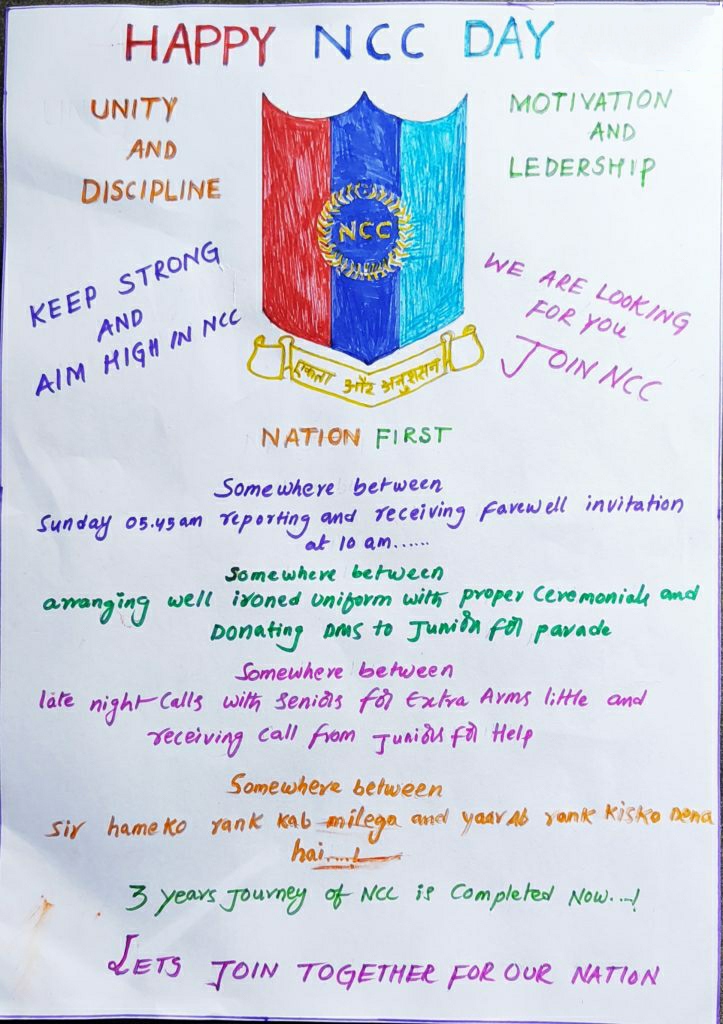 HAPPY NCC DAY
UNITY
AND
DISCIPLINE
MOTIVATION
AND
LEDERSHIP
NCC
KEEP STRONG
AND
AIM HIGH IN NCC
WE ARE LOOKING
FOR YOU
JOIN NCC
एकता और अनुशसन
NATION FIRST
Somewhere between
Sunday 05.45am reporting and receiving farewell invitation
at 10 am......
Somewhere between
arranging well ironed uniform with proper Ceremonials and
Donating DMS to Junior for parade
Somewhere between
late night Calls with Seniors for Extra Arms little and
receiving call from Juniors for Help
Somewhere between
Sir hameko rank kab milega and yaar Ab rank kisko Dena
hai.....!
3 years Journey of NCC is Completed Now...!
LETS JOIN TOGETHER FOR OUR NATION